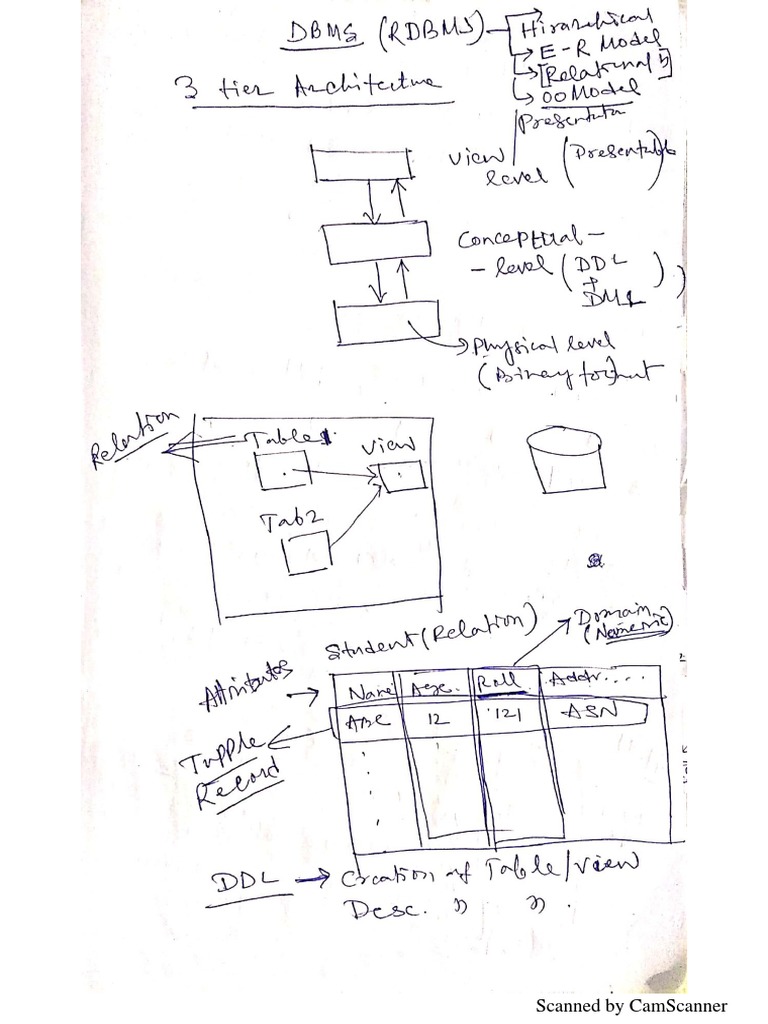 DBMS (RDBMS) → Hirarchical
→ E-R Model
→ [Relational "]
→ OO Model
3 tier Architecture
Presentation
View level (Presentable)
Conceptual -
- level (DDL + DML)
→ Physical level
(Binary format
Relation
Table 1.
View
Tab 2
Student (Relation)
Domain
(Numeric)
Attributes →
Name Age. Roll Addr....
ABC 12 '121 ASN
Tupple
Record
DDL → Creation of Table/View
Desc. " ".
Scanned by CamScanner